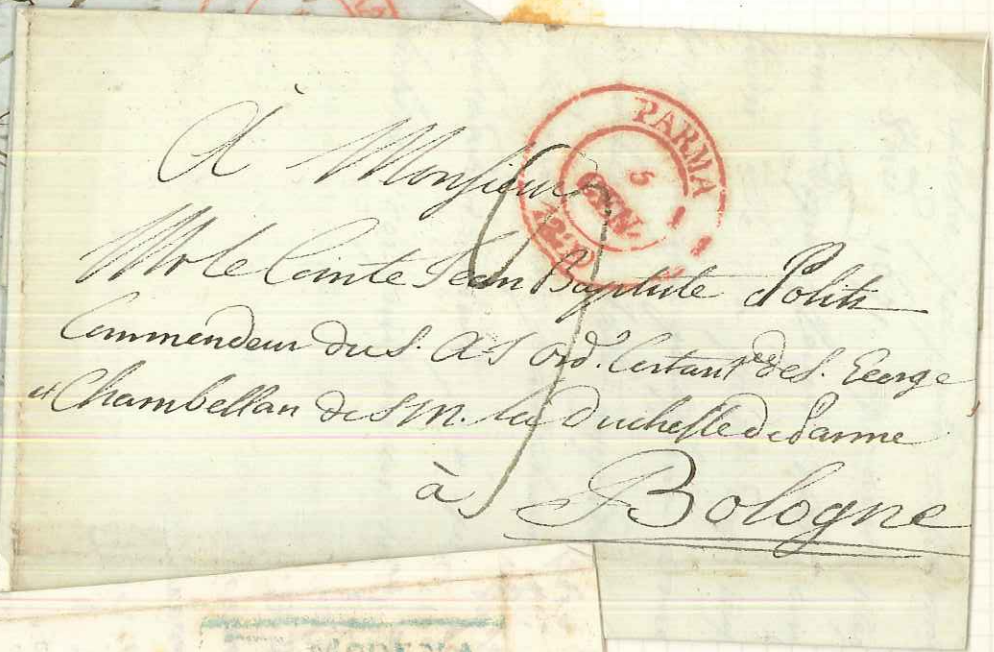 À Monsieur
PARMA
5
GEN.
Mr le Comte Jean Baptiste Politi
Commendeur du S. A. I Ord.e Costant.ee de S. George
et Chambellan de S M. la Duchesse de Parme
à Bologne
MODENA